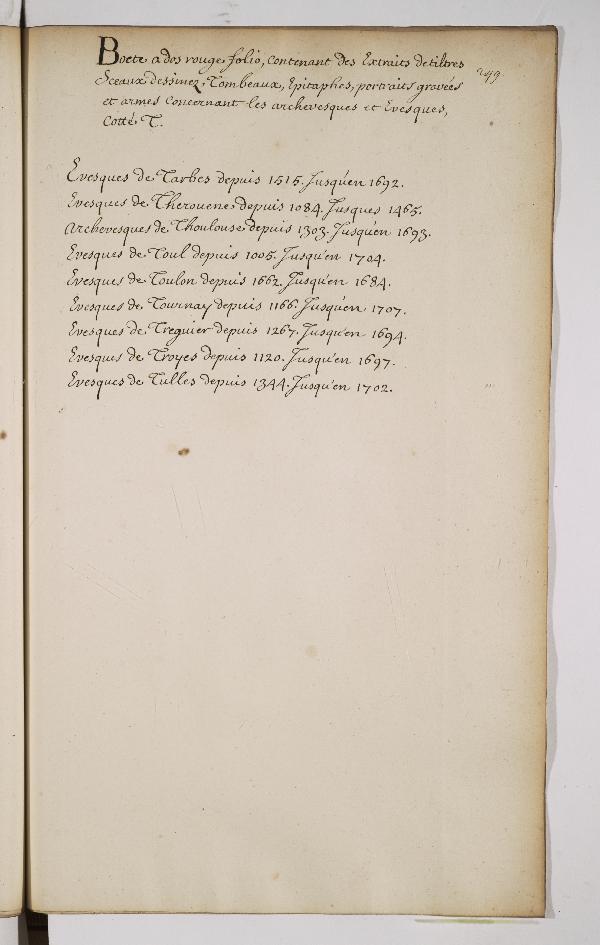 Boete a dos rouge folio, contenant des Extraits de tiltres
249.
Sceaux dessinez, Tombeaux, Epitaphes, portraits gravées
et armes Concernant les archevesques et Evesques,
Cotté. T.
Evesques de Tarbes depuis 1515. Jusqu'en 1692.
Evesques de Therouene depuis 1084. Jusques 1465.
Archevesques de Thoulouse depuis 1303. Jusqu'en 1693.
Evesques de Toul depuis 1005. Jusqu'en 1704.
Evesques de Toulon depuis 1662. Jusqu'en 1684.
Evesques de Tournay depuis 1166. Jusqu'en 1707.
Evesques de Treguier depuis 1267. Jusqu'en 1694.
Evesques de Troyes depuis 1120. Jusqu'en 1697.
Evesques de Tulles depuis 1344. Jusqu'en 1702.